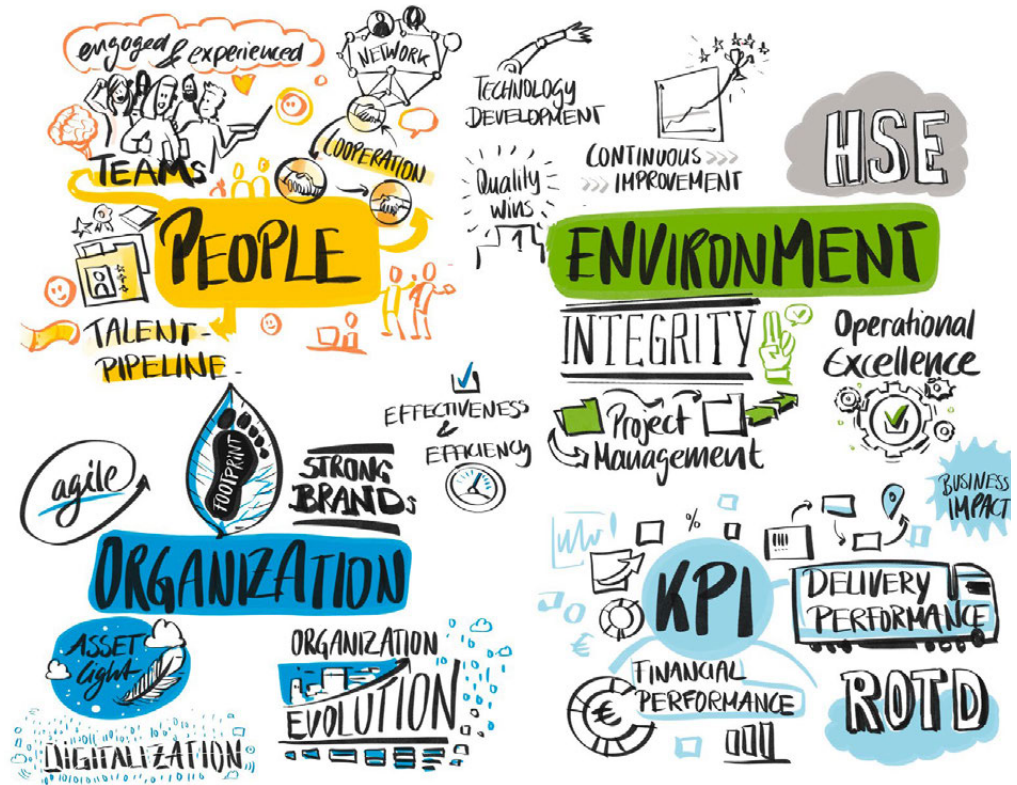 engaged & experienced
NETWORK
TEAMS
COOPERATION
PEOPLE
TALENT-
PIPELINE
TECHNOLOGY
DEVELOPMENT
CONTINUOUS
IMPROVEMENT
Quality
wins
1
HSE
ENVIRONMENT
INTEGRITY
Operational
Excellence
Project
Management
EFFECTIVENESS
&
EFFICIENCY
agile
FOOTPRINT
STRONG
BRANDS
ORGANIZATION
ASSET
light
DIGITALIZATION
ORGANIZATION
EVOLUTION
BUSINESS
IMPACT
%
KPI
DELIVERY
PERFORMANCE
€
FINANCIAL
PERFORMANCE
€
ROTD